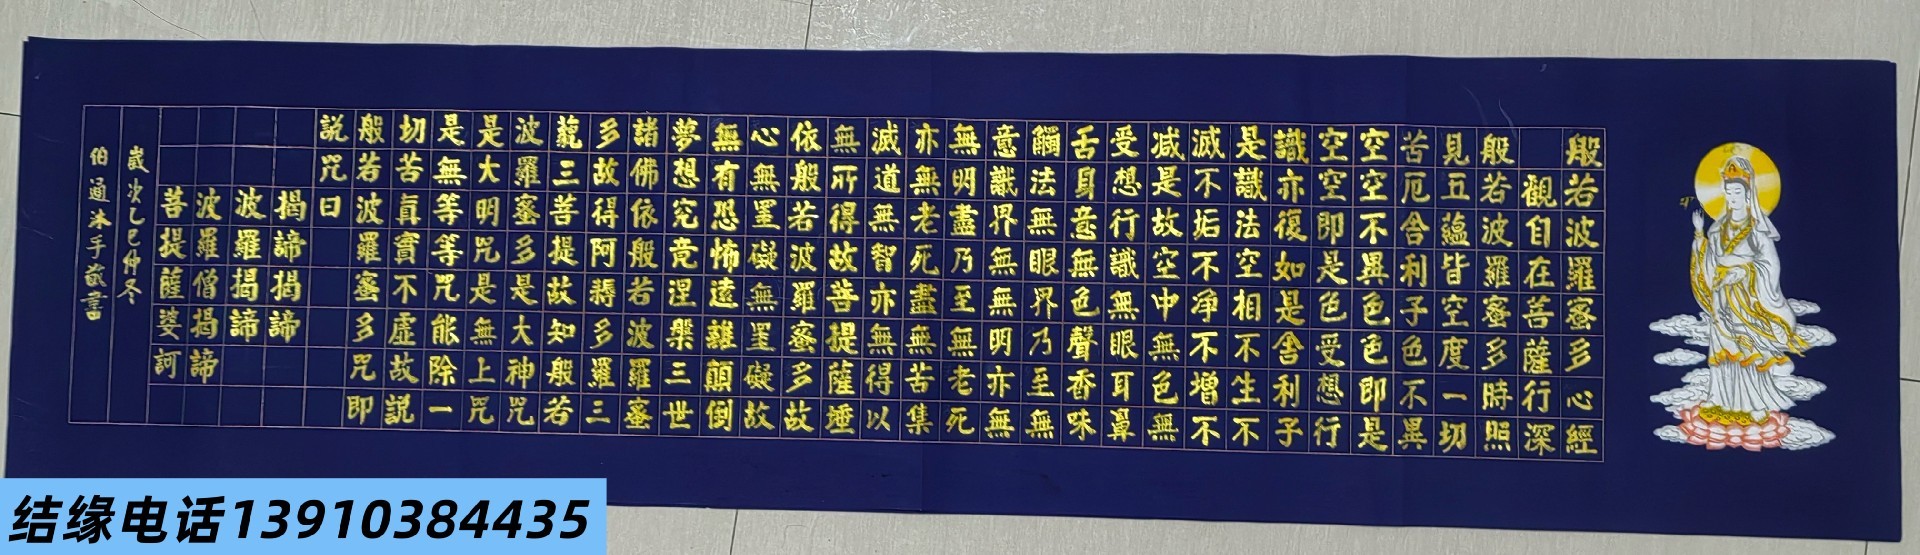 般若波羅蜜多心經
觀自在菩薩行深
般若波羅蜜多時照
見五蘊皆空度一切
苦厄舍利子色不異
空空不異色色即是
空空即是色受想行
識亦復如是舍利子
是識法空相不生不
滅不垢不净不增不
减是故空中無色無
受想行識無眼耳鼻
舌身意無色聲香味
觸法無眼界乃至無
意識界無無明亦無
無明盡乃至無老死
亦無老死盡無苦集
滅道無智亦無得以
無所得故菩提薩埵
依般若波羅蜜多故
心無罣礙無罣礙故
無有恐怖遠離顛倒
夢想究竟涅槃三世
諸佛依般若波羅蜜
多故得阿耨多羅三
藐三菩提故知般若
波羅蜜多是大神咒
是大明咒是無上咒
是無等等咒能除一
切苦真實不虛故説
般若波羅蜜多咒即
説咒曰
揭諦揭諦
波羅揭諦
波羅僧揭諦
菩提薩婆訶
歲次乙巳仲冬
伯通沐手敬書
结缘电话13910384435